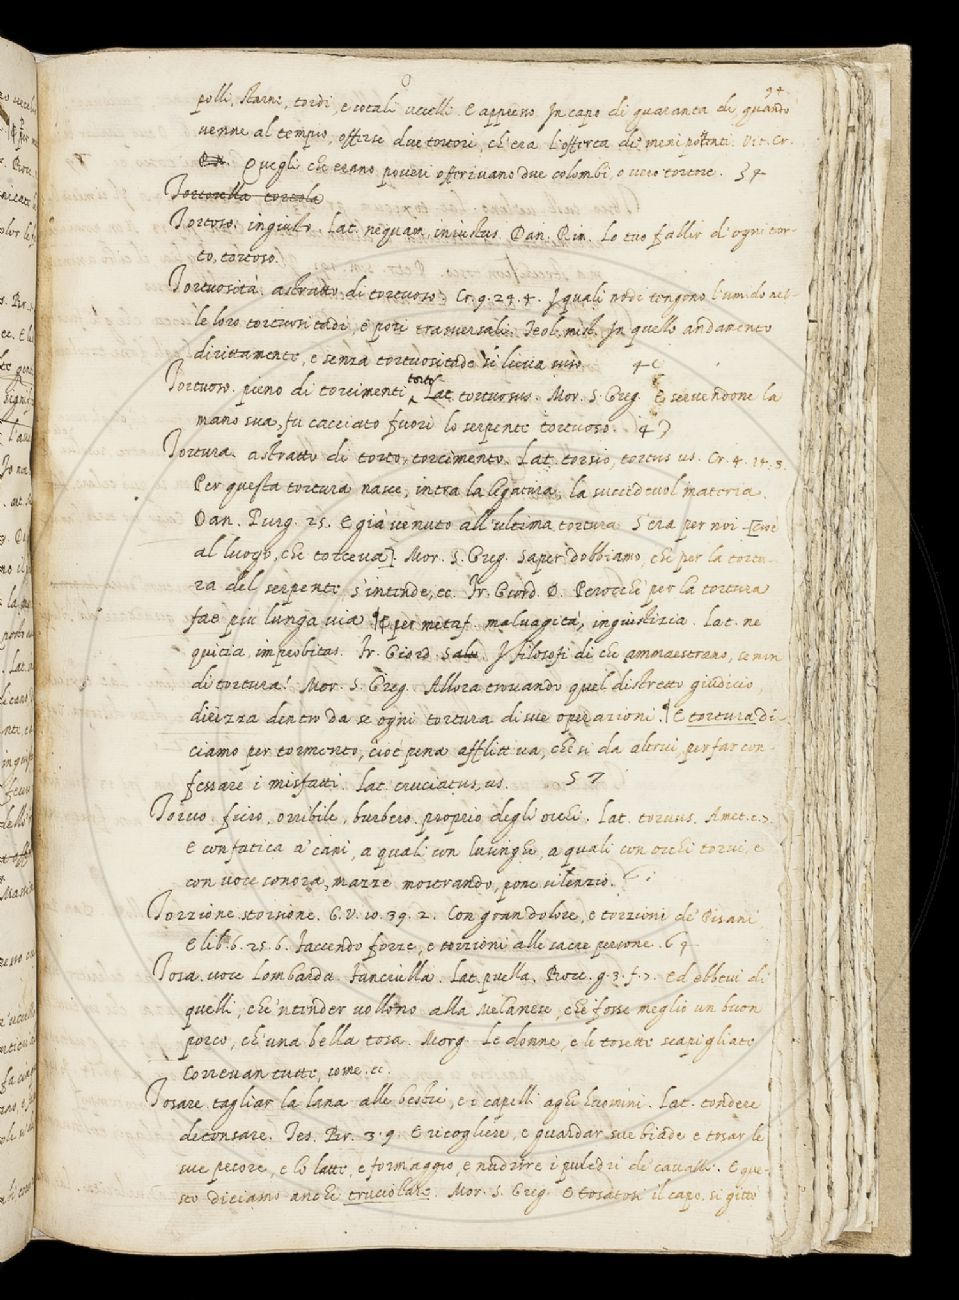 94
polli, starne, tordi, e cotali uccelli. E appresso. In capo di quaranta dì, quando
venne al tempio, offerse due tortori, ch'era l'offerta di meni possenti. Vit. Cr.
Quegli che erano poveri offerivano due colombi, o vero tortore. 34
Tortorella tortola
Tortoso. ingiusto. Lat. nequam, iniustus. Dan. Rim. Lo tuo fallir d'ogni tor-
to, tortoso.
Tortuosità. astratto di tortuoso. Cr. 9. 24. 4. I quali nodi tengono l'umido nel-
le loro tortuositadi, e pori trasversali. Teol. mist. In quello andamento
dirittamente, e senza tortuositade si lieva suso 4
Tortuoso. pieno di torcimenti torto Lat. tortuosus. Mor. S. Greg. E servendone la
mano sua, fu cacciato fuori lo serpente tortuoso. 4
Tortura. astratto di torto, torcimento. Lat. torsio, tortus us. Cr. 4. 14. 3.
Per questa tortura nasce, intra la legatura, la succidevol materia.
Dan. Purg. 25. E già venuto all'ultima tortura S'era per noi [cioè
al luogo, che torceva]. Mor. S. Greg. Saper dobbiamo, che per la tortu-
ra del serpente s'intende, ec. Fr. Giord. D. Perocchè per la tortura
fae più lunga via ¶ E per metaf. malvagità, ingiustizia. Lat. ne
quitia, improbitas. Fr. Giord. Salu. I filosofi di che ammaestrano, se non
di tortura! Mor. S. Greg. Allora trovando quel distretto giudicio,
dirizza dentro da se ogni tortura di sue operazioni. ¶ E tortura di-
ciamo per tormento, cioè pena afflittiva, che si da altrui, per far con-
fessare i misfatti. Lat. cruciatus, us. 57
Torvo. fiero, orribile, burbero. proprio degli occhi. Lat. torvus. Amet.
E con fatica a' cani, a quali con lusinghe, a quali con occhi torvi, e
con voce sonora, mazze mostrando, pone silenzio.
Torzione. storsione. G. V. 10. 39. 2. Con gran dolore, e torzioni de' Pisani
E lib. 6. 25. 6. Faccendo forze, e torzioni alle sacre persone. 64
Tosa. voce Lombarda. Fanciulla. Lat. puella. Bocc. g. 3. f. Ed ebbevi di
quelli, che 'ntender vollono alla melanese, che fosse meglio un buon
porco, ch'una bella tosa. Morg. Le donne, e le tosette scapigliate
Correvan tutte, come. ec.
Tosare. tagliar la lana alle bestie, e i capelli agli huomini. Lat. tondere
detonsare. Tes. Br. 3. 9. E ricogliere, e guardar sue biade e tosar le
sue pecore, e lo latte, e formaggio, e nudrire i puledri de' cavalli. E que-
sto diciamo anche truciolare. Mor. S. Greg. E tosatosi il capo, si gittò